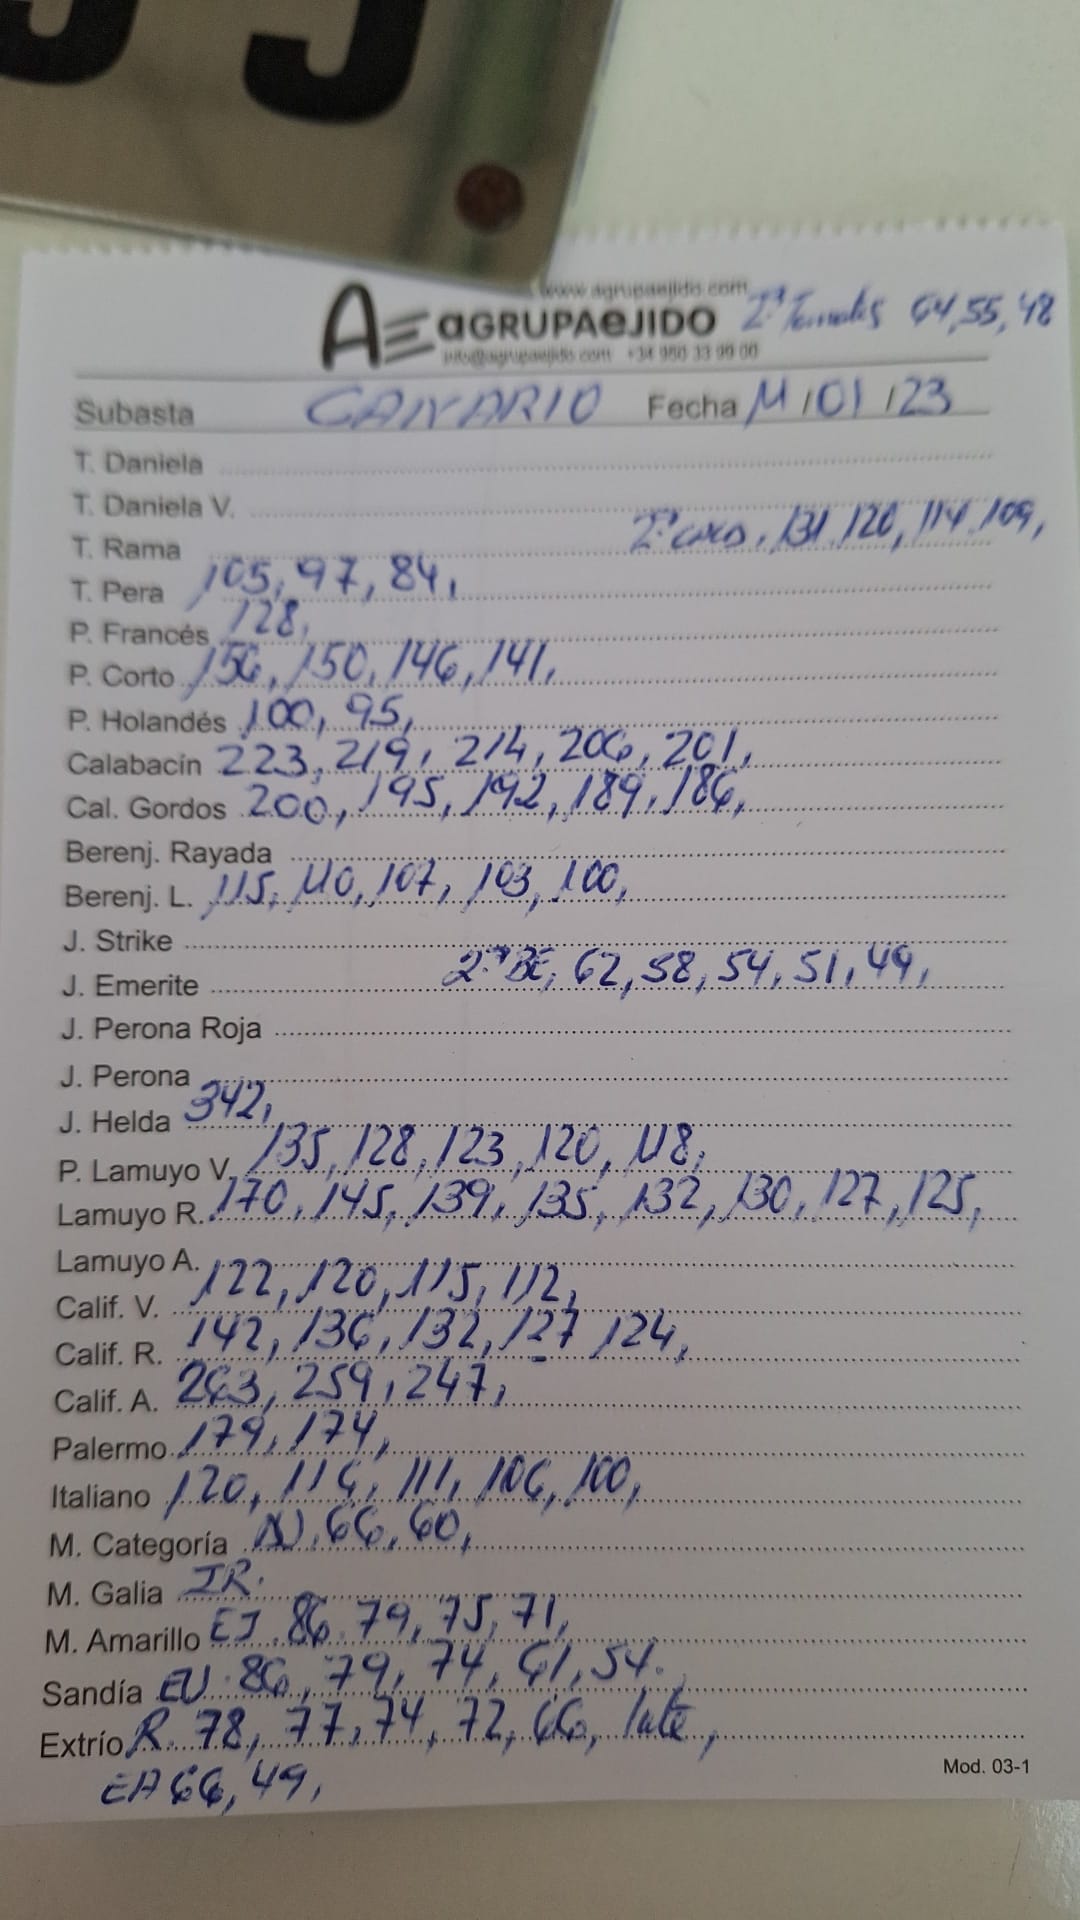 55
www.agrupaejido.com
AGRUPAEJIDO 2ª Tomates 64, 55, 48
info@agrupaejido.com +34 950 33 99 00
Subasta CANARIO Fecha 11/01/23
T. Daniela
T. Daniela V.
T. Rama 2ª 131, 120, 114, 109,
T. Pera 105, 97, 84,
P. Francés 128,
P. Corto 156, 150, 146, 141,
P. Holandés 100, 95,
Calabacín 223, 219, 214, 206, 201,
Cal. Gordos 200, 195, 192, 189, 186,
Berenj. Rayada
Berenj. L. 115, 110, 107, 103, 100,
J. Strike
J. Emerite 2ª BE, 62, 58, 54, 51, 49,
J. Perona Roja
J. Perona
J. Helda 342,
P. Lamuyo V. 135, 128, 123, 120, 118,
Lamuyo R. 170, 145, 139, 135, 132, 130, 127, 125,
Lamuyo A.
Calif. V. 122, 120, 115, 112,
Calif. R. 142, 136, 132, 127 124,
Calif. A. 263, 259, 247,
Palermo 179, 174,
Italiano 120, 116, 111, 106, 100,
M. Categoría 66, 60,
M. Galia IR.
M. Amarillo EJ. 86. 79, 75, 71,
Sandía EU. 86, 79, 74, 61, 54.
Extrío R. 78, 77, 74, 72, 66,
EA 66, 49,
Mod. 03-1